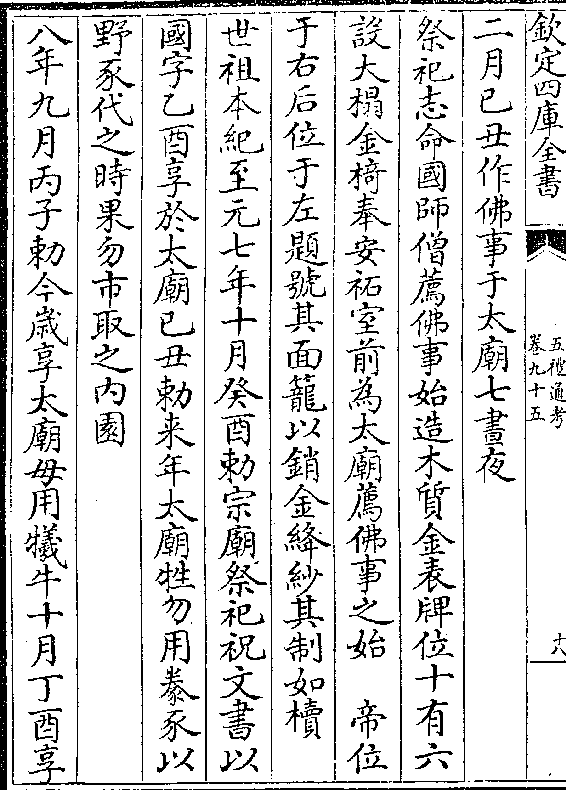 欽定四庫全書
五禮通考
卷九十五
十八
二月已丑作佛事于太廟七晝夜
祭祀志命國師僧薦佛事始造木質金表牌位十有六
設大榻金椅奉安祏室前為太廟薦佛事之始　帝位
于右后位于左題號其面籠以銷金絳紗其制如櫝
世祖本紀至元七年十月癸酉勅宗廟祭祀祝文書以
國字乙酉享於太廟已丑勅来年太廟牲勿用豢豕以
野豕代之時果勿市取之内園
八年九月丙子勅今歲享太廟毋用犧牛十月丁酉享